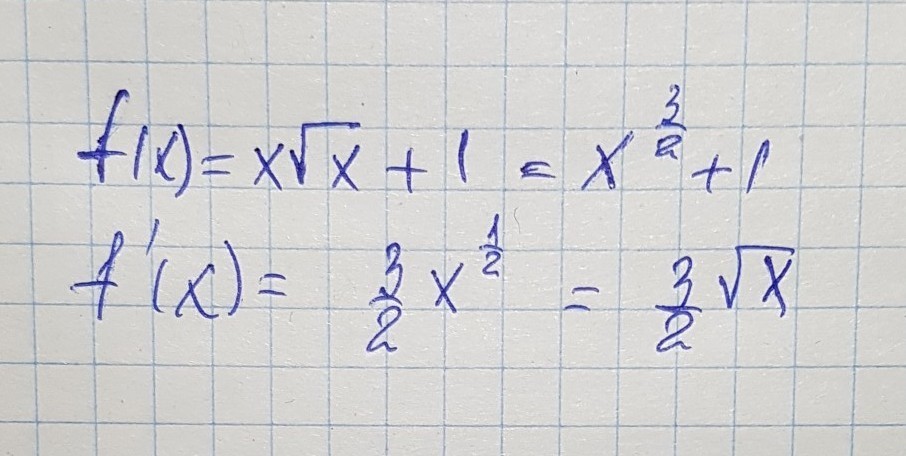 f(x) = x√x + 1 = x^(3/2) + 1
f'(x) = 3/2 x^(1/2) = 3/2 √x